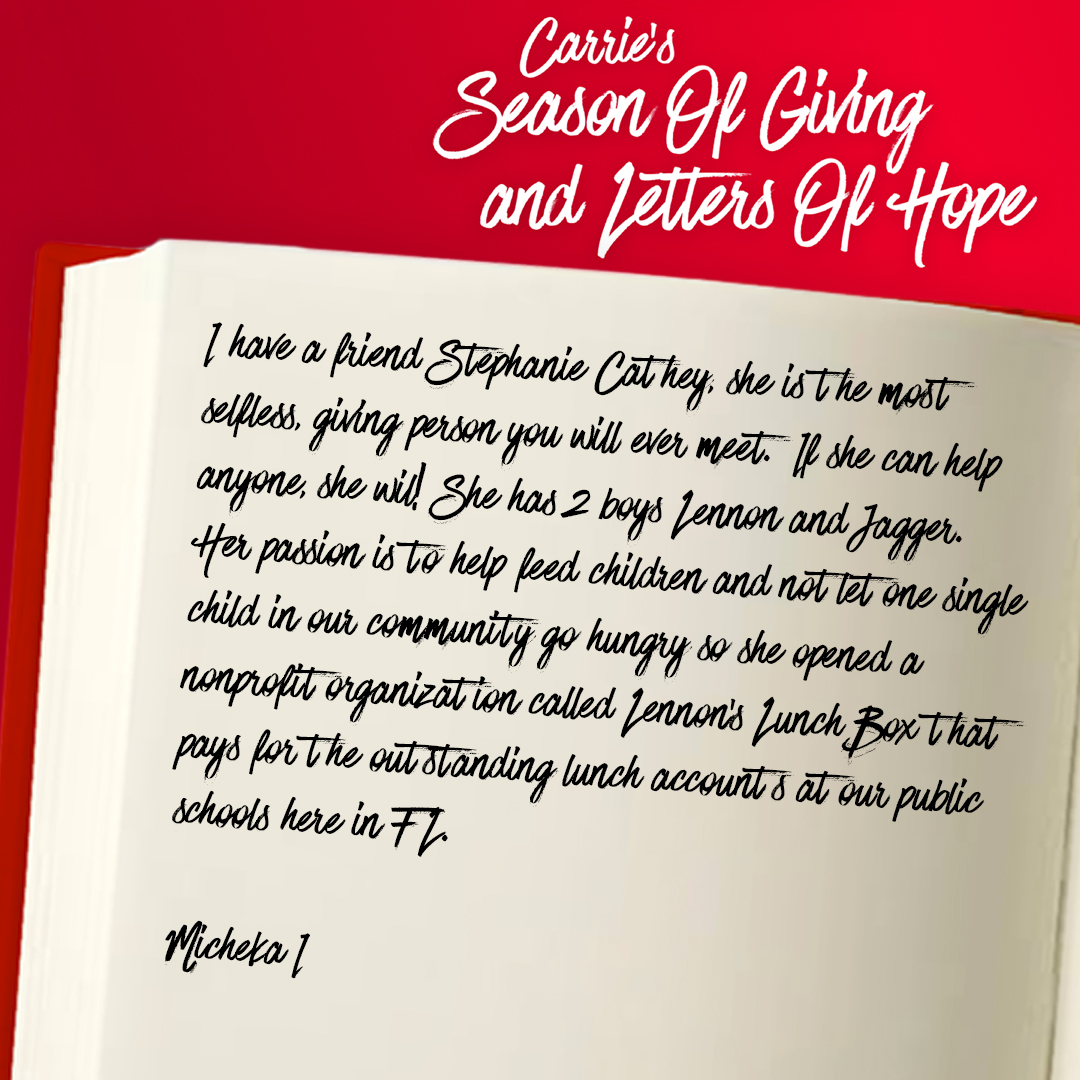 Carrie's
Season Of Giving
and Letters Of Hope
I have a friend Stephanie Cathey, she is the most
selfless, giving person you will ever meet. If she can help
anyone, she will! She has 2 boys Lennon and Jagger.
Her passion is to help feed children and not let one single
child in our community go hungry so she opened a
nonprofit organization called Lennon's Lunch Box that
pays for the outstanding lunch accounts at our public
schools here in FL.
Micheka I